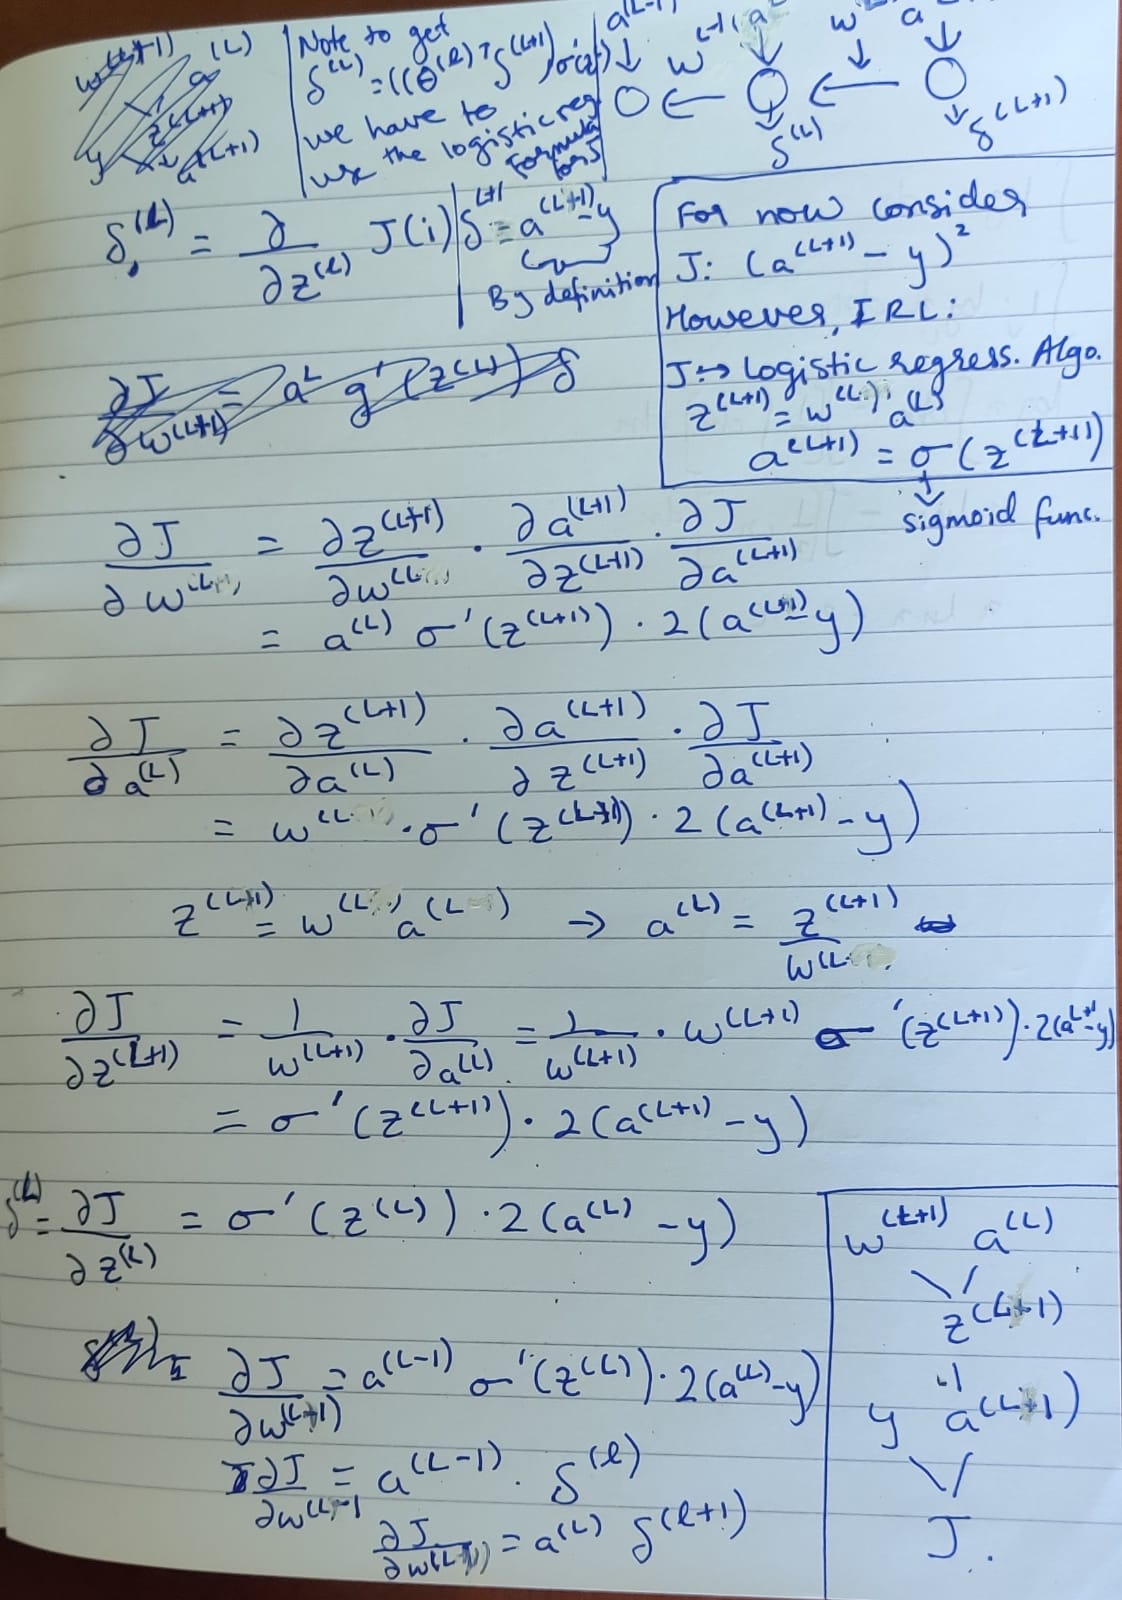 Note to get
δ^(L) = ((Θ^(l))ᵀ δ^(L+1)) σ'(z)
we have to
use the logistic reg
Formula
for δ
a^(L-1)
w^(L-1)
δ^(L)
δ^(L+1)
δ^(l) = ∂/∂z^(l) J(i)
δ^(L+1) = a^(L+1) - y
By definition
For now consider
J: (a^(L+1) - y)²
However, IRL:
J → Logistic regress. Algo.
z^(L+1) = w^(L) a^(L)
a^(L+1) = σ(z^(L+1))
sigmoid func.
∂J/∂w^(L) = ∂z^(L+1)/∂w^(L) · ∂a^(L+1)/∂z^(L+1) · ∂J/∂a^(L+1)
= a^(L) σ'(z^(L+1)) · 2(a^(L+1) - y)
∂J/∂a^(L) = ∂z^(L+1)/∂a^(L) · ∂a^(L+1)/∂z^(L+1) · ∂J/∂a^(L+1)
= w^(L) · σ'(z^(L+1)) · 2(a^(L+1) - y)
z^(L+1) = w^(L) a^(L) → a^(L) = z^(L+1)/w^(L)
∂J/∂z^(L+1) = 1/w^(L+1) · ∂J/∂a^(L) = 1/w^(L+1) · w^(L+1) σ'(z^(L+1)) · 2(a^(L+1) - y)
= σ'(z^(L+1)) · 2(a^(L+1) - y)
δ^(L) = ∂J/∂z^(L) = σ'(z^(L)) · 2(a^(L) - y)
∂J/∂w^(L+1) = a^(L-1) σ'(z^(L)) · 2(a^(L) - y)
∂J/∂w^(L-1) = a^(L-1) · δ^(l)
∂J/∂w^(L) = a^(L) δ^(l+1)
w^(L+1) a^(L)
z^(L+1)
y a^(L+1)
J.